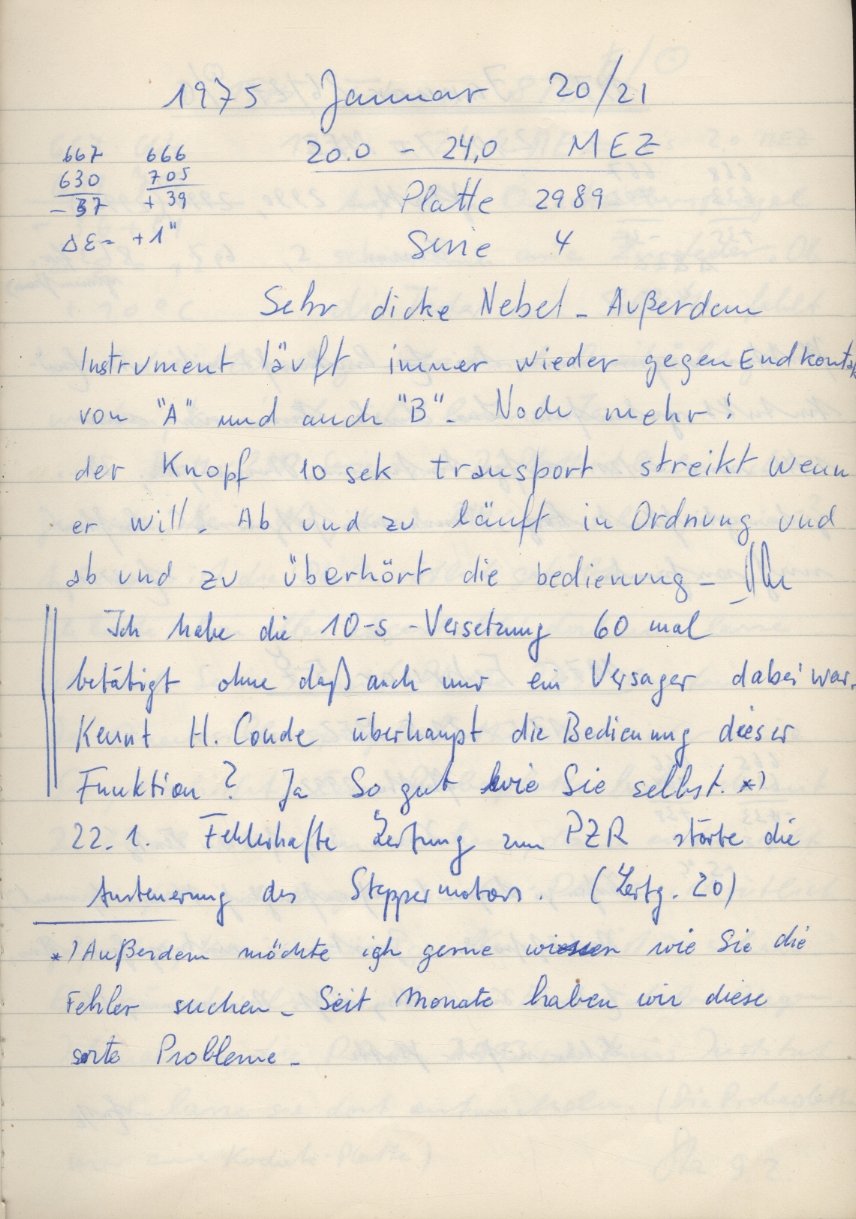 1975 Januar 20/21
20.0 - 24,0 MEZ
667 666
630 705
- 37 + 39
Δε= +1"
Platte 2989
Serie 4
Sehr dicke Nebel - Außerdem
Instrument läuft immer wieder gegen Endkontak
von "A" und auch "B". Noch mehr!
der Knopf 10 sek transport streikt wenn
er will. Ab und zu läuft in Ordnung und
ab und zu überhört die bedienung -
Ich habe die 10-s-Versetzung 60 mal
betätigt ohne daß auch nur ein Versager dabei war.
Kennt H. Conde überhaupt die Bedienung dieser
Funktion? Ja So gut wie Sie selbst. *)
22.1. Fehlerhafte Leitung zum PZR störte die
Ansteuerung des Steppermotors. (Leitg. 20)
*) Außerdem möchte igh gerne wissen wie Sie die
Fehler suchen - Seit Monate haben wir diese
sorte Probleme -